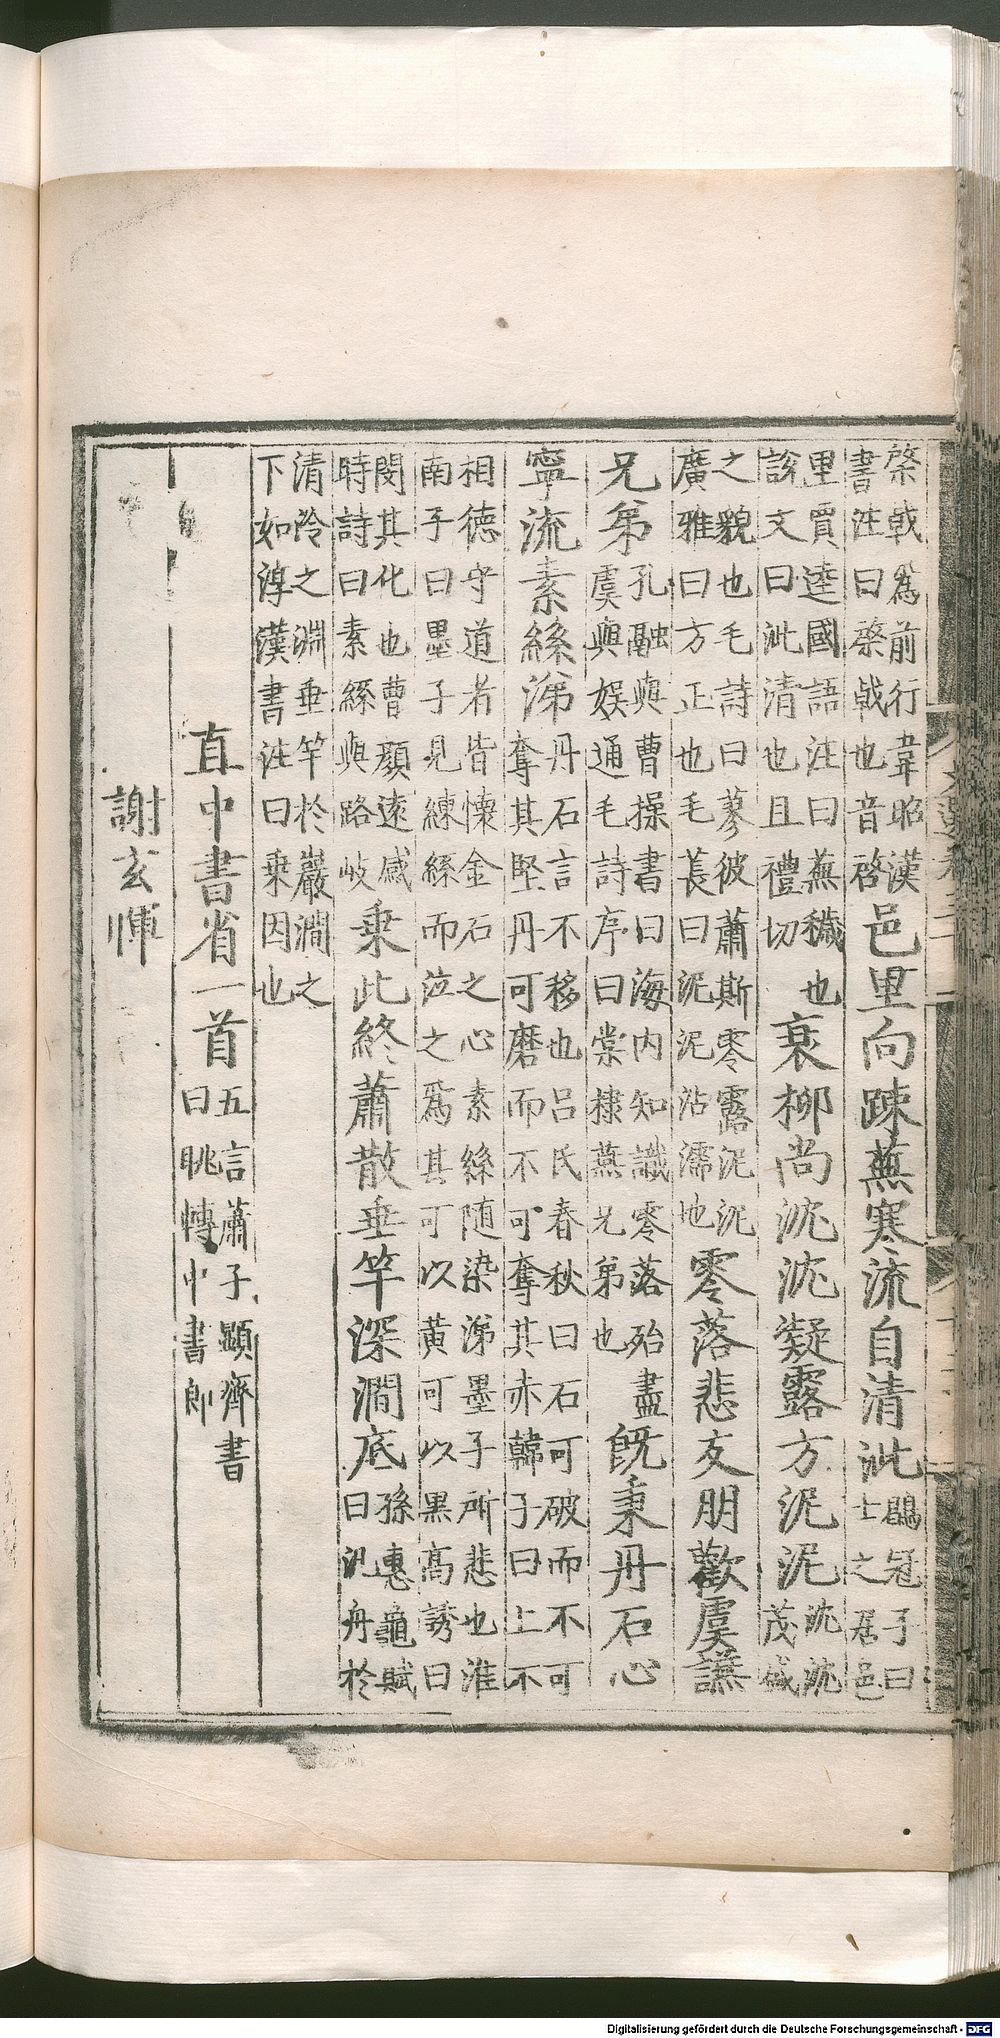 棨戟爲前行韋昭漢書注曰棨戟也音啓邑里向踈蕪寒流自清泚鶡冠子曰士之居邑
里賈逵國語注曰蕪穢也說文曰泚清也且禮切衰柳尚沈沈凝露方泥泥沈沈茂盛
之貌也毛詩曰蓼彼蕭斯零露泥泥廣雅曰方正也毛萇曰泥泥沾濡也零落悲友朋歡虞讌
兄弟孔融與曹操書曰海内知識零落殆盡虞與娛通毛詩序曰棠棣燕兄弟也旣秉丹石心
寧流素絲涕丹石言不移也呂氏春秋曰石可破而不可奪其堅丹可磨而不可奪其赤韓子曰上不
相德守道者皆懷金石之心素絲随染涕墨子所悲也淮南子曰墨子見練絲而泣之爲其可以黃可以黑高誘曰
閔其化也曹顏遠感時詩曰素絲與路歧乗此終蕭散垂竿深澗底孫惠龜賦曰汎舟於
清泠之淵垂竿於巖澗之下如淳漢書注曰乗因也
直中書省一首五言蕭子顯齊書曰眺轉中書郎
謝玄暉
Digitalisierung gefördert durch die Deutsche Forschungsgemeinschaft - DFG